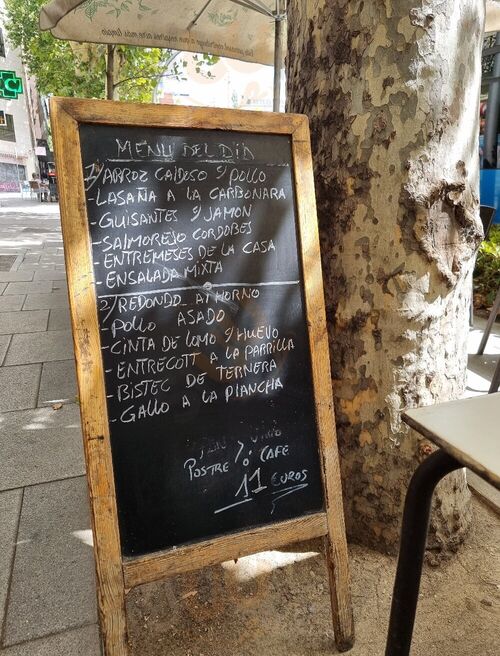 MENU DEL DIA
1/ARROZ CALDOSO C/POLLO
-LASAÑA A LA CARBONARA
-GUISANTES C/JAMON
-SALMOREJO CORDOBES
-ENTREMESES DE LA CASA
-ENSALADA MIXTA
2/REDONDO AL HORNO
-POLLO ASADO
-CINTA DE LOMO C/HUEVO
-ENTRECOTT A LA PARRILLA
-BISTEC DE TERNERA
-GALLO A LA PLANCHA
PAN VINO
POSTRE ó CAFE
11 EUROS